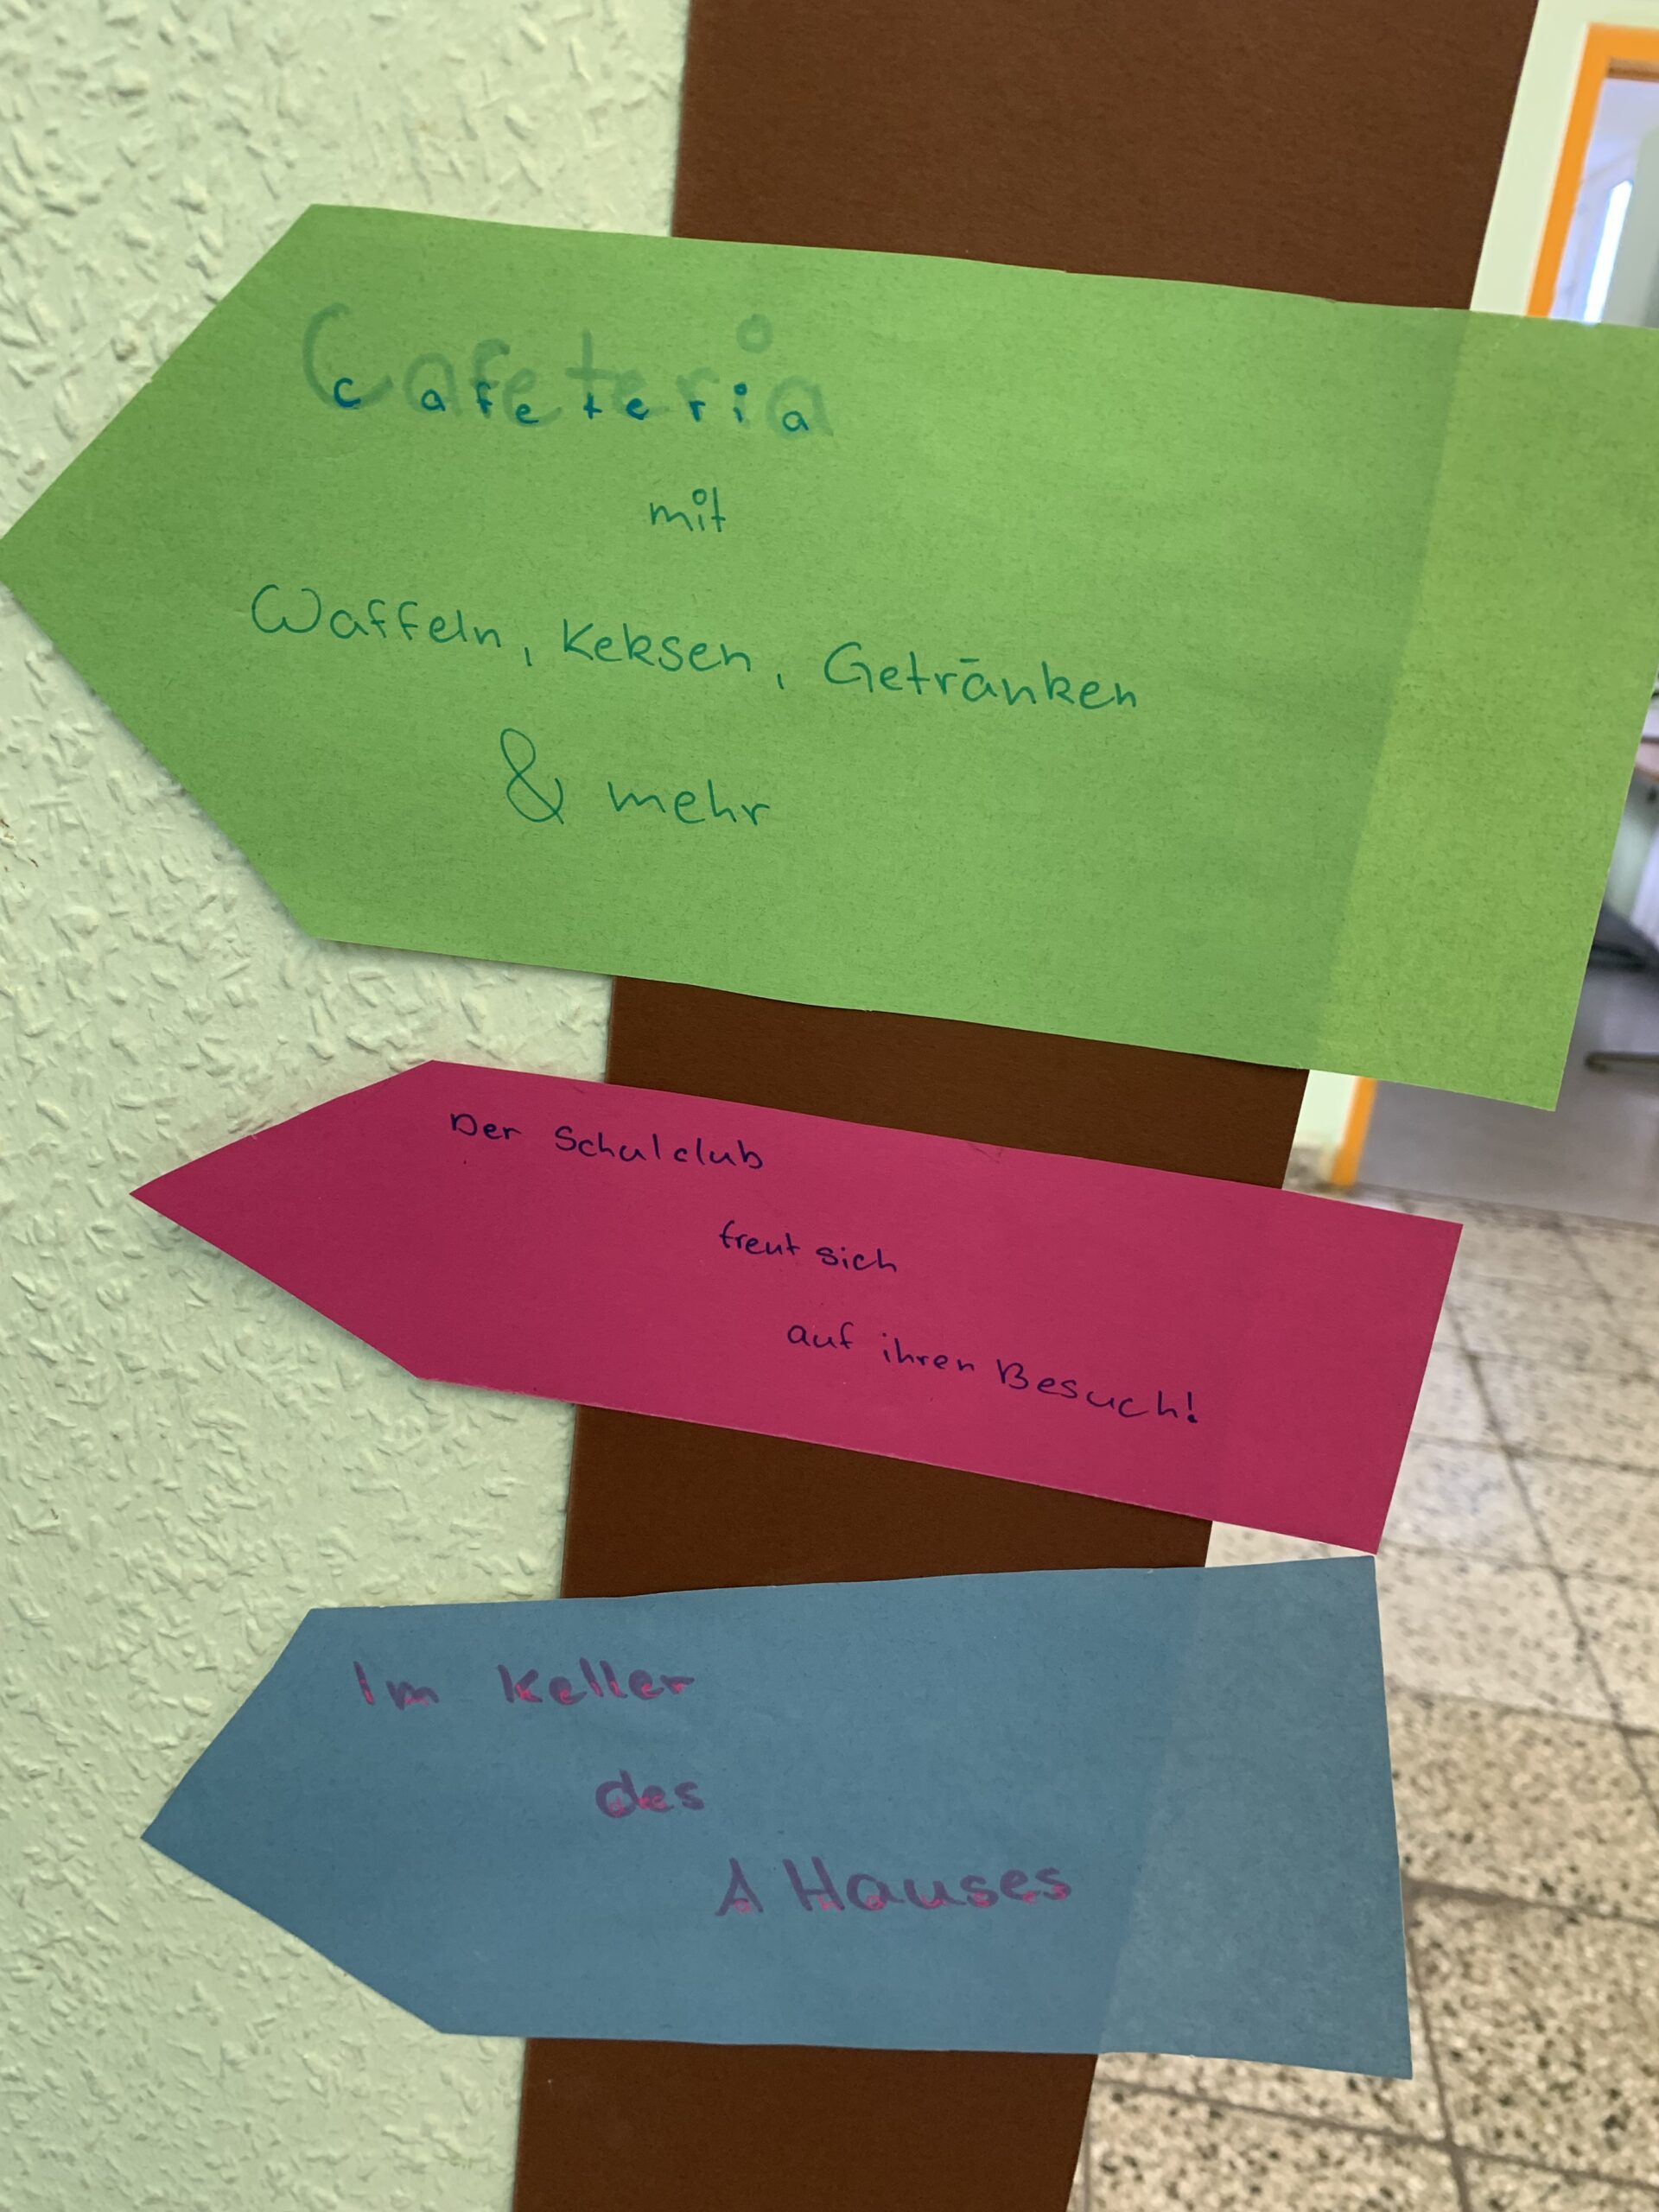 Cafeteria
cafeteria
mit
Waffeln, Keksen, Getränken
& mehr
Der Schulclub
freut sich
auf ihren Besuch!
Im Keller
des
A Hauses